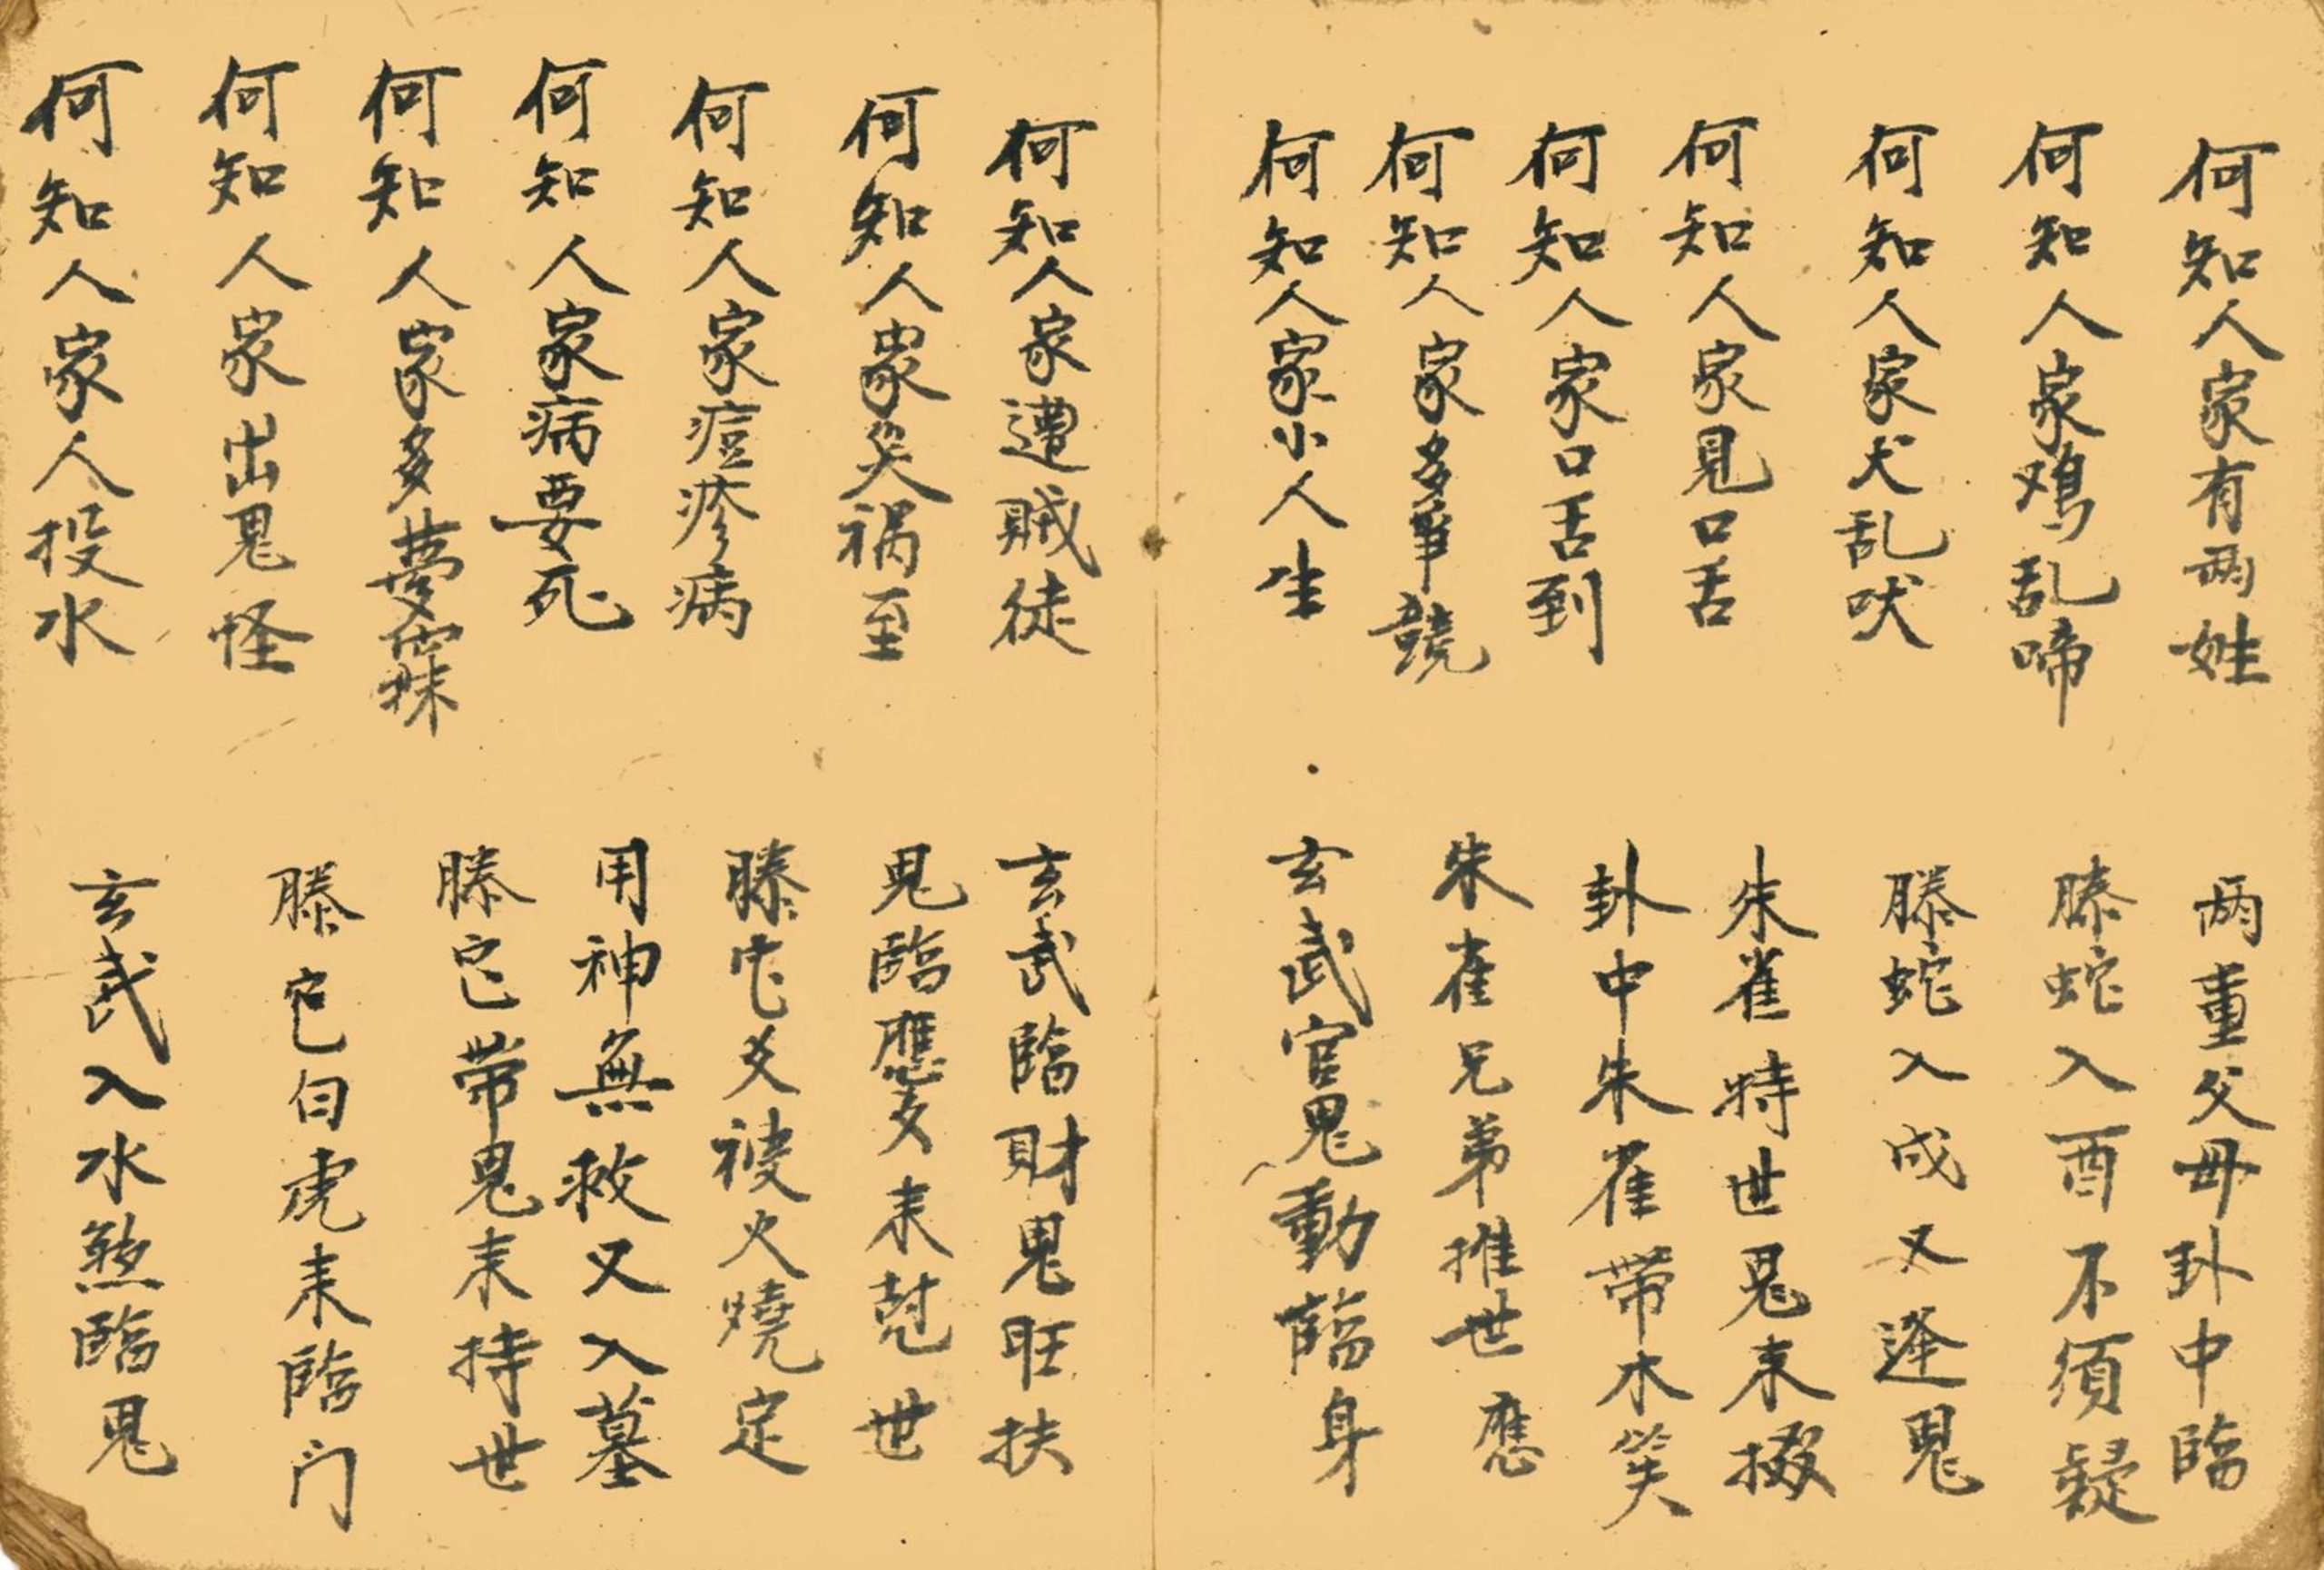 何知人家有两姓 两重父母卦中臨
何知人家鸡乱啼 螣蛇入酉不須疑
何知人家犬乱吠 螣蛇入戌又逢鬼
何知人家見口舌 朱雀持世鬼来掇
何知人家口舌到 卦中朱雀带木笑
何知人家多爭競 朱雀兄弟推世應
何知人家小人生 玄武官鬼動臨身
何知人家遭賊徒 玄武臨財鬼旺扶
何知人家災祸至 鬼臨應爻来尅世
何知人家痘疹病 螣它爻被火燒定
何知人家病要死 用神無救又入墓
何知人家多夢寐 螣它带鬼来持世
何知人家出鬼怪 螣它白虎来臨门
何知人家人投水 玄武入水煞臨鬼